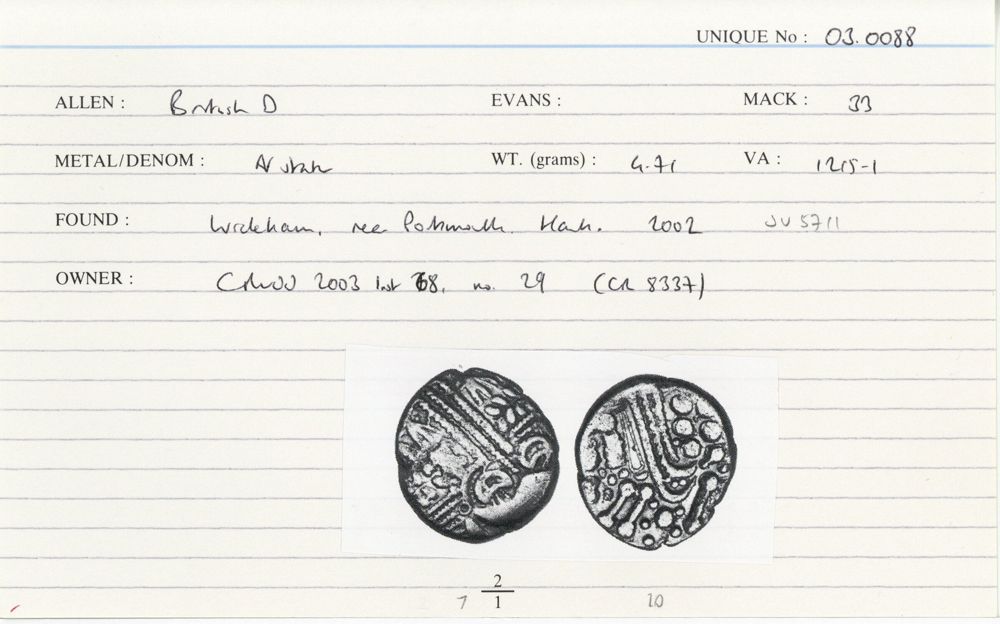 UNIQUE No : 03.0088
ALLEN : British D EVANS : MACK : 33
METAL/DENOM : AV stater WT. (grams) : 4.71 VA : 1215-1
FOUND : Wickham, near Portsmouth, Hants. 2002 SU 5711
OWNER : 2003 list 68, no. 29 (CR 8337)
2
7 1 10